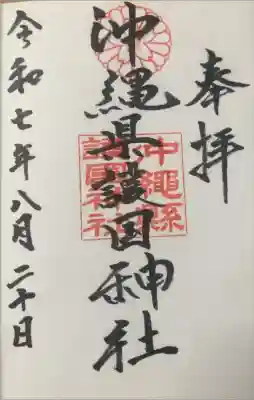 奉拝
沖縄県護国神社
沖繩縣護國神社
令和七年八月二十日